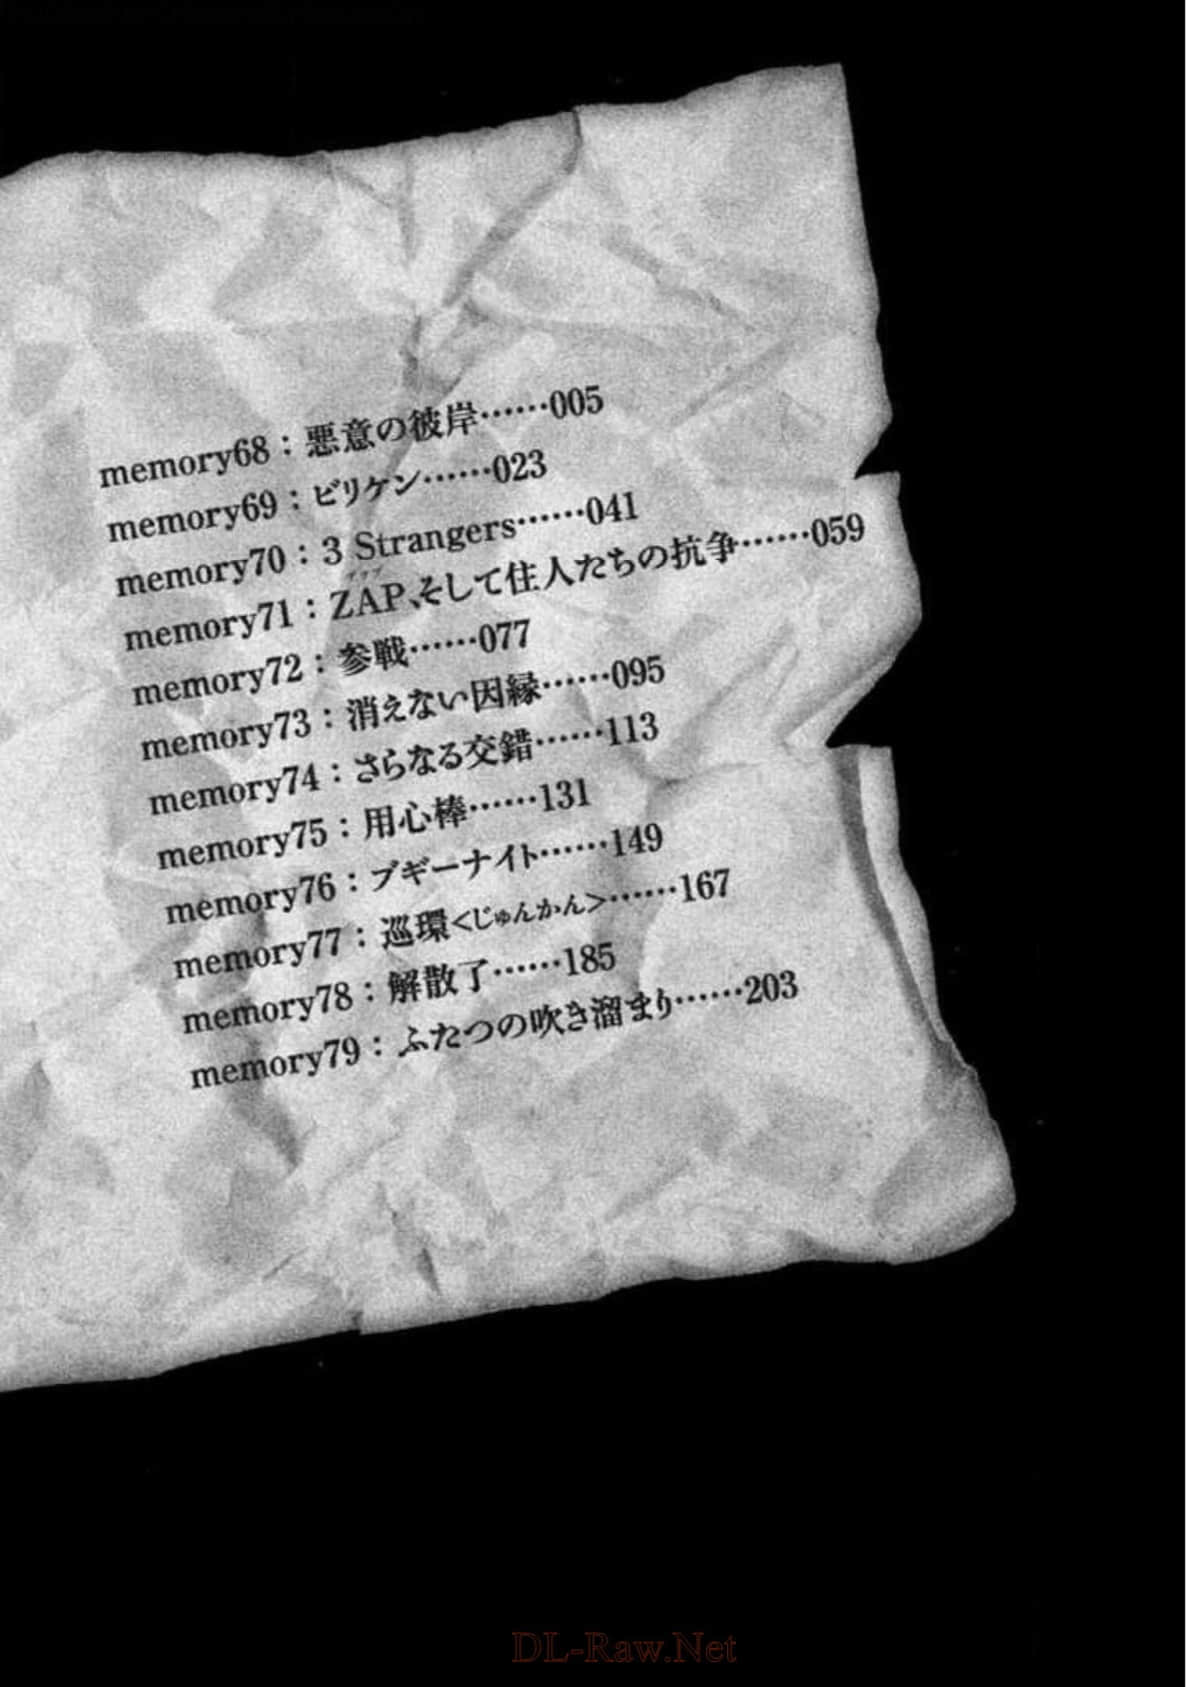 memory68：悪意の彼岸……005
memory69：ビリケン……023
memory70：3 Strangers……041
memory71：ZAP、そして住人たちの抗争……059
memory72：参戦……077
memory73：消えない因縁……095
memory74：さらなる交錯……113
memory75：用心棒……131
memory76：ブギーナイト……149
memory77：巡環<じゅんかん>……167
memory78：解散了……185
memory79：ふたつの吹き溜まり……203
DL-Raw.Net